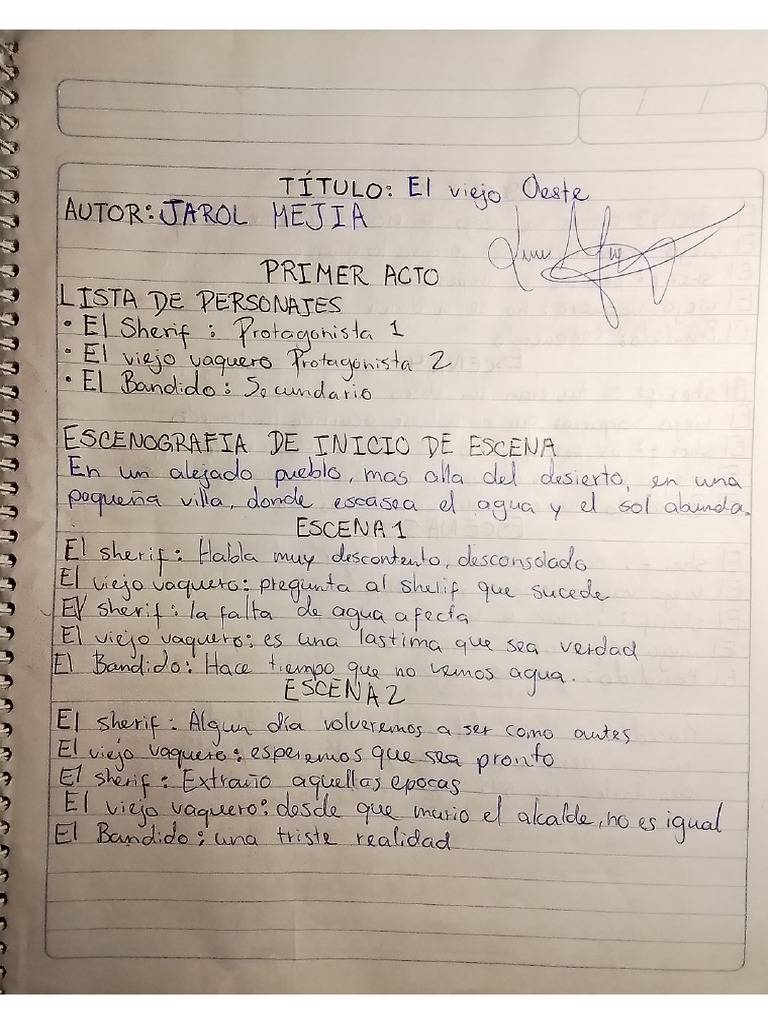 TÍTULO: El viejo Oeste
AUTOR: JAROL MEJIA
PRIMER ACTO
LISTA DE PERSONAJES
• El Sherif : Protagonista 1
• El viejo vaquero Protagonista 2
• El Bandido : Secundario
ESCENOGRAFIA DE INICIO DE ESCENA
En un alejado pueblo, mas alla del desierto, en una
pequeña villa, donde escasea el agua y el sol abunda.
ESCENA 1
El sherif : Habla muy descontento, desconsolado
El viejo vaquero: pregunta al sherif que sucede
El sherif : la falta de agua afecta
El viejo vaquero: es una lastima que sea verdad
El Bandido: Hace tiempo que no vemos agua.
ESCENA 2
El sherif : Algun día volveremos a ser como antes
El viejo vaquero : esperemos que sea pronto
El sherif : Extraño aquellas epocas
El viejo vaquero: desde que murio el alcalde, no es igual
El Bandido : una triste realidad